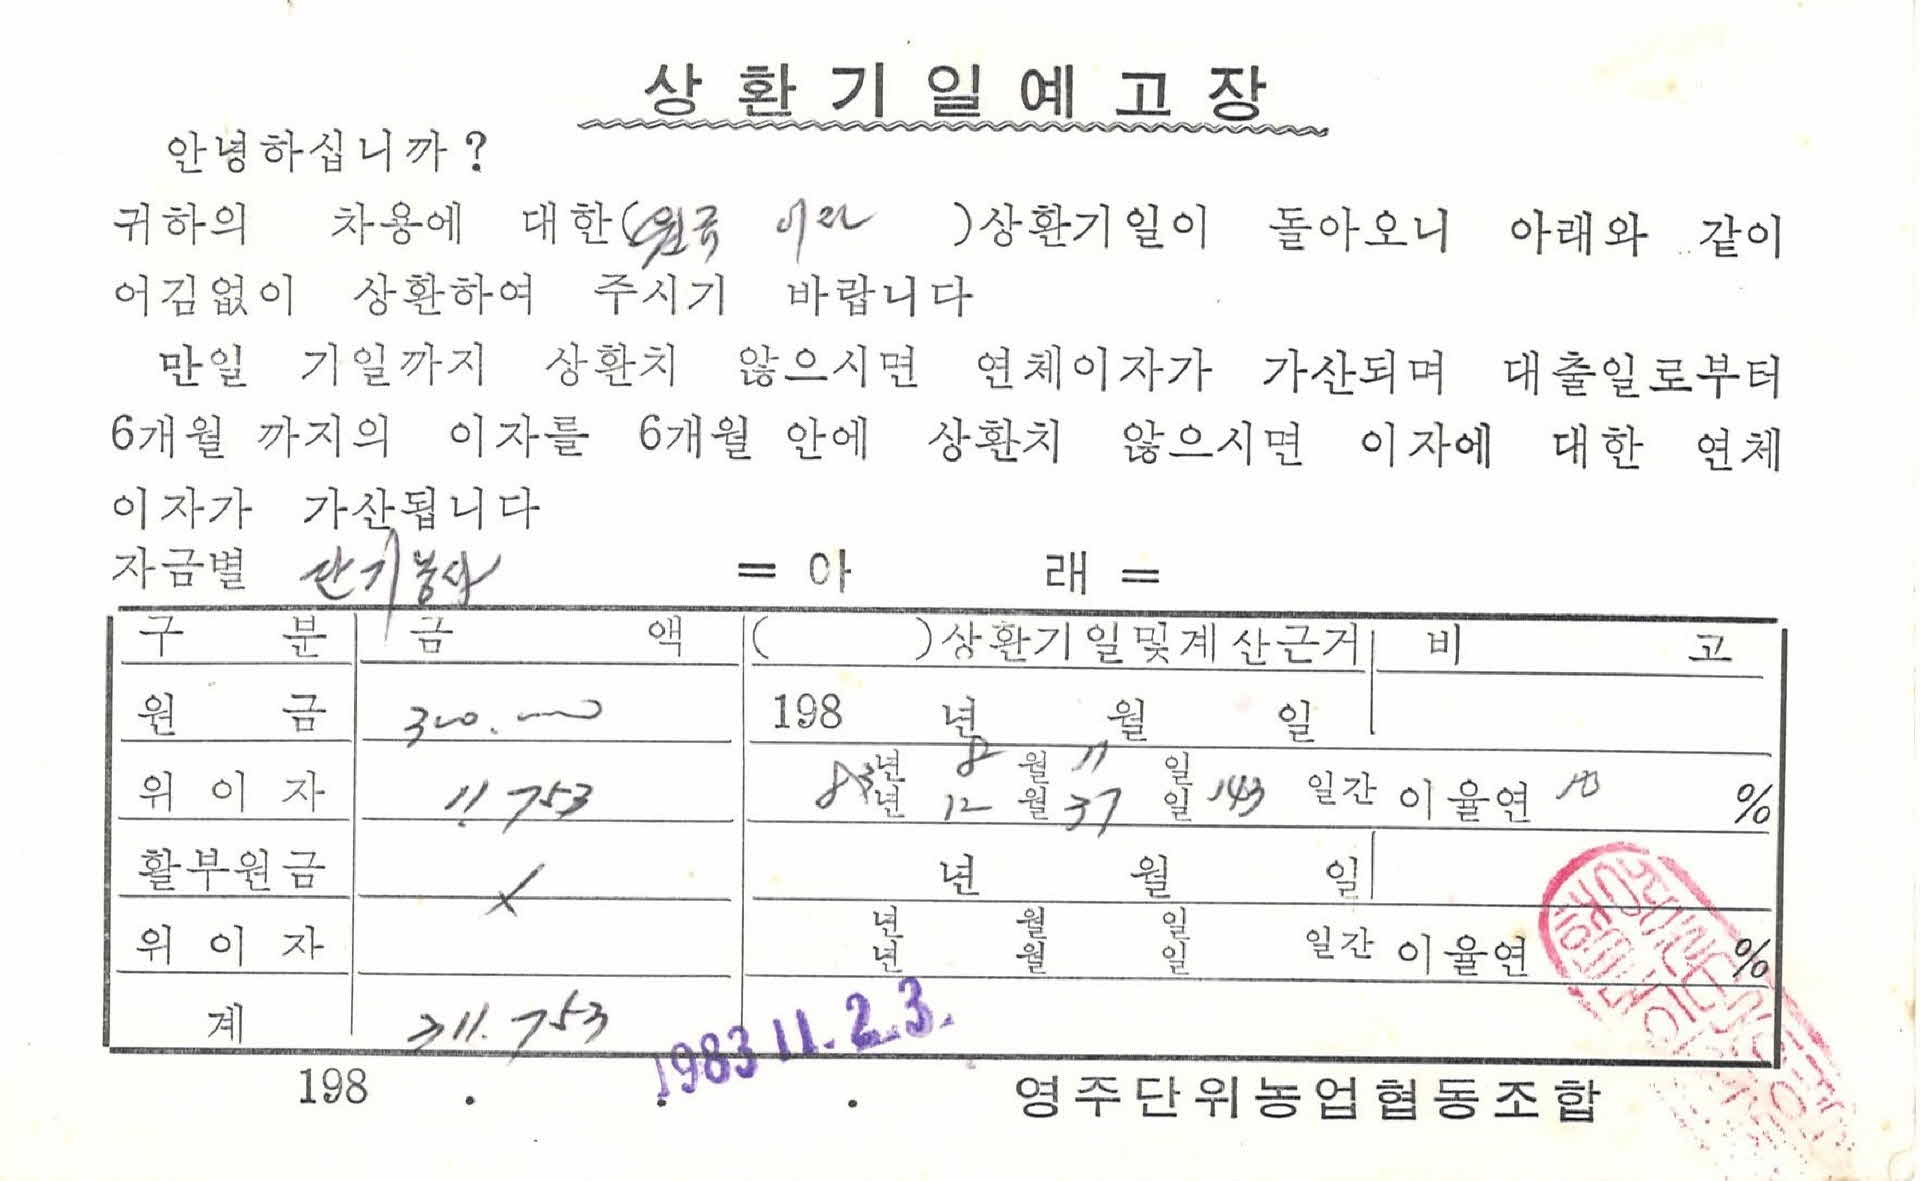 상환기일예고장
안녕하십니까?
귀하의 차용에 대한(원금 이자 )상환기일이 돌아오니 아래와 같이
어김없이 상환하여 주시기 바랍니다
만일 기일까지 상환치 않으시면 연체이자가 가산되며 대출일로부터
6개월 까지의 이자를 6개월 안에 상환치 않으시면 이자에 대한 연체
이자가 가산됩니다
자금별 단기농사 = 아 래 =
구 분 금 액 ( )상환기일및계산근거 비 고
원 금 300.000 198 년 월 일
위 이 자 11.753 83년 8월 11일
년 12월 일 143 일간 이율연 10 %
활부원금 년 월 일
위 이 자 년 월 일
년 월 일 일간 이율연 %
계 311.753
198 . . .
1983 11. 2.3.
영주단위농업협동조합